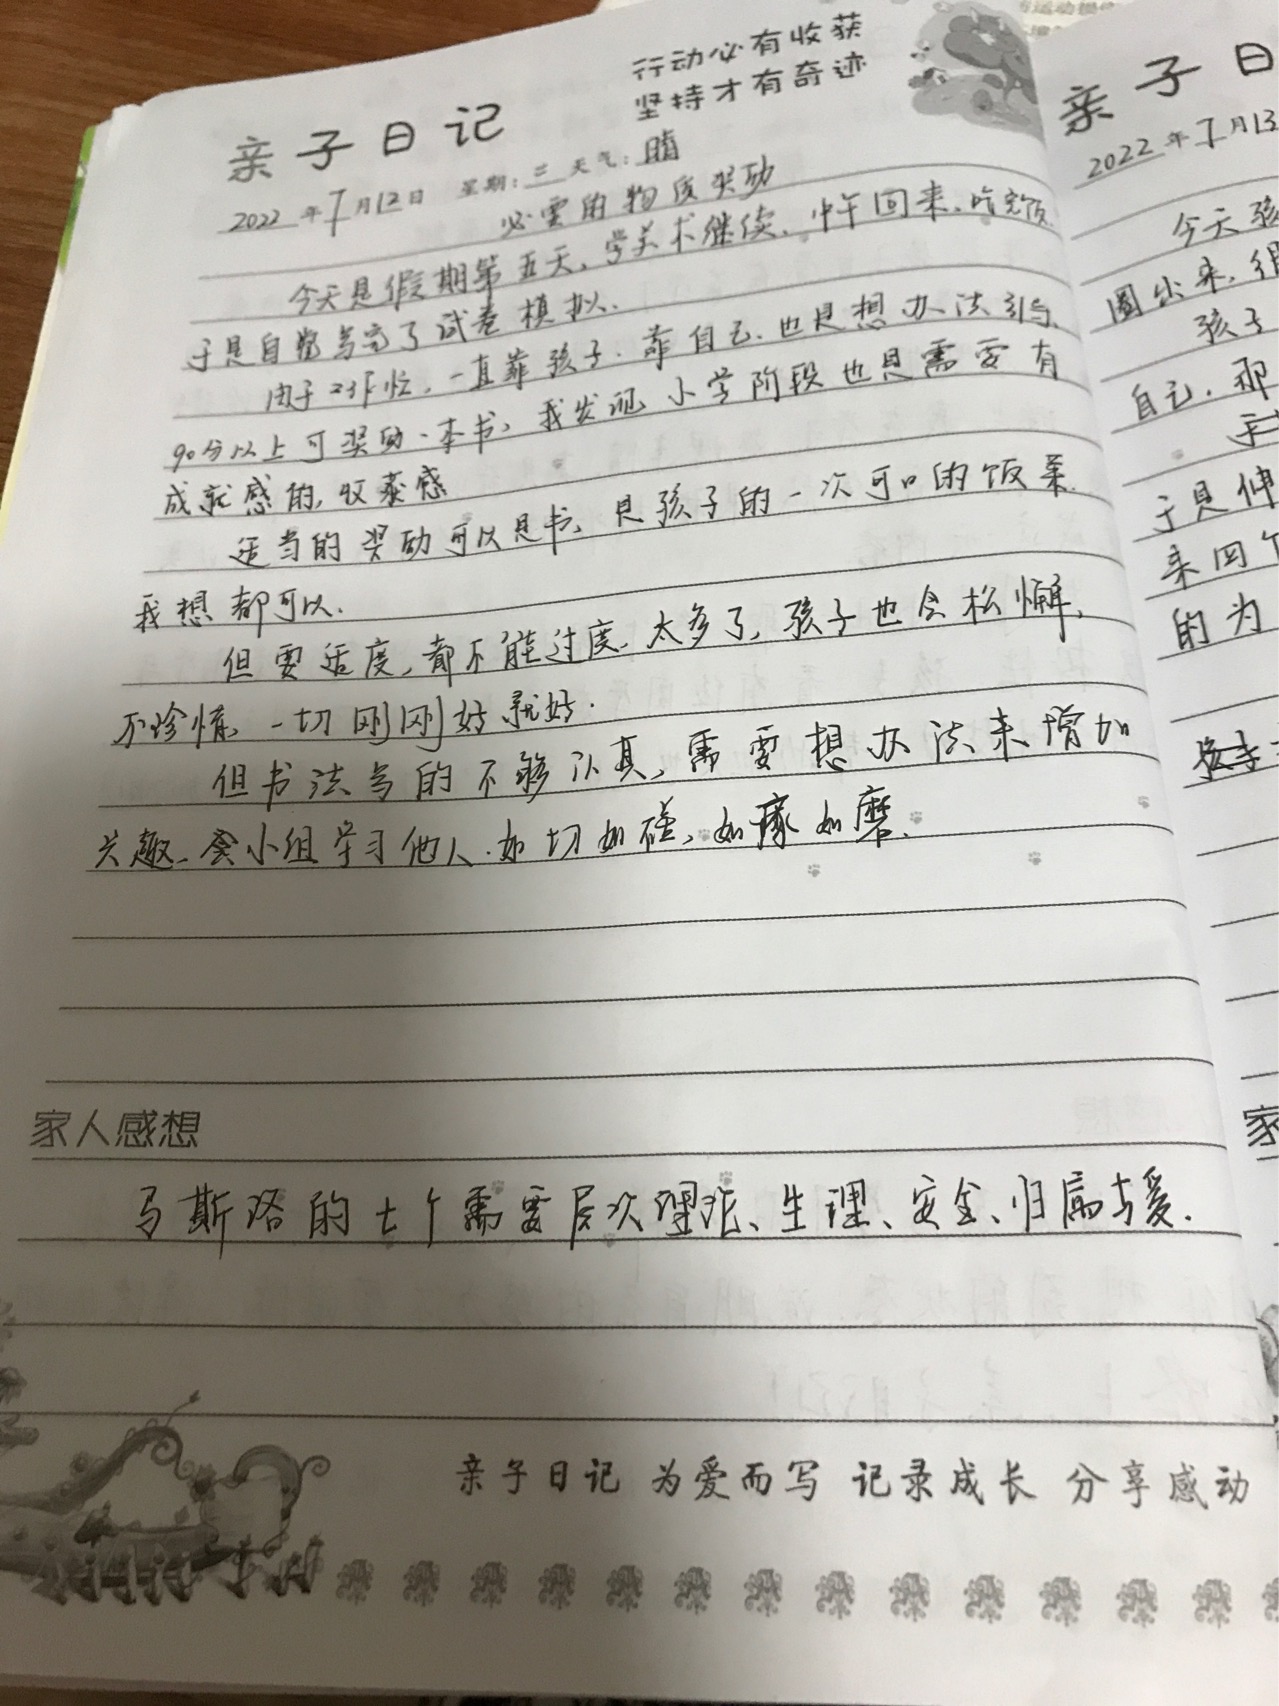 行动必有收获
坚持才有奇迹
亲子日记
2022年7月12日 星期:三 天气:晴
必要的物质奖励
今天是假期第五天,学美术继续,中午回来,吃完饭
于是自觉写完了试卷模拟.
由于工作忙,一直靠孩子.靠自己.也是想办法引导,
90分以上可奖励一本书,我发现小学阶段也是需要有
成就感的,收获感
适当的奖励可以是书,是孩子的一次可口的饭菜
我想都可以.
但要适度,都不能过度,太多了,孩子也会松懈,
不珍惜,一切刚刚好就好.
但书法写的不够认真,需要想办法来增加
兴趣,会小组学习他人.如切如磋,如琢如磨.
家人感想
马斯洛的七个需要层次理论、生理、安全、归属与爱.
亲子日记 为爱而写 记录成长 分享感动
亲子日
2022年7月13
今天孩
圈出来,
孩子
自己.那
于是伸
来四个
的为
家